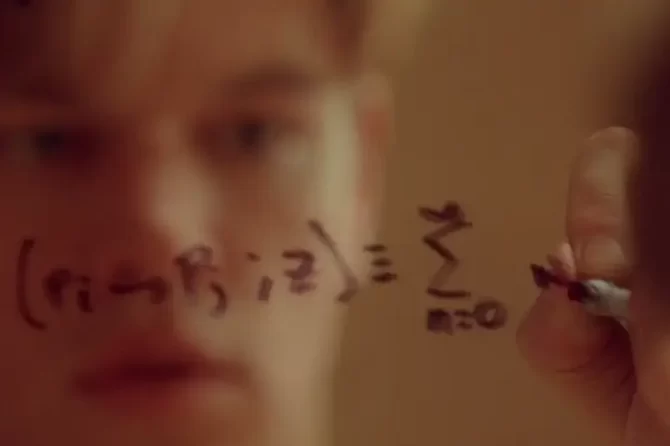 (P_i → P_j ; z) ≡ ∑_{n=0}^{∞}